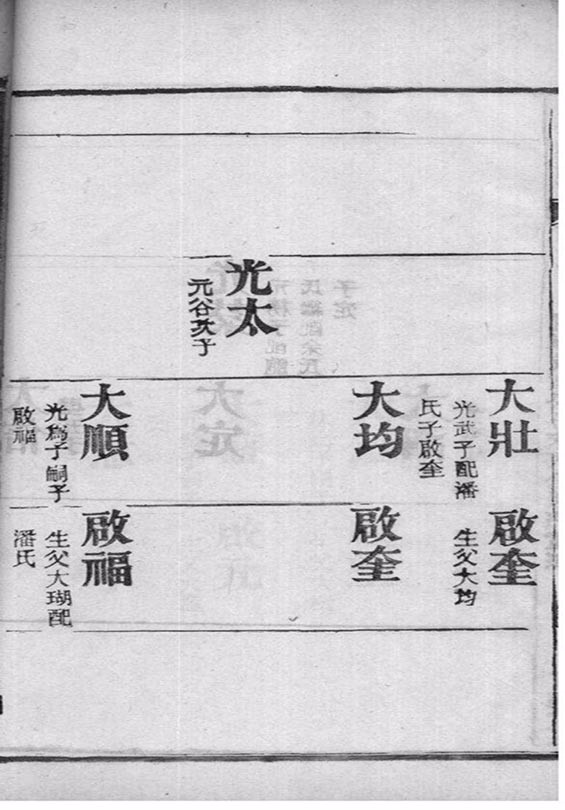 光太
元谷次子
大壯
光武子配潘
氏子啟奎
大均
大順
光爲子嗣子
啟福
啟奎
生父大均
啟奎
啟福
生父大瑚配
潘氏